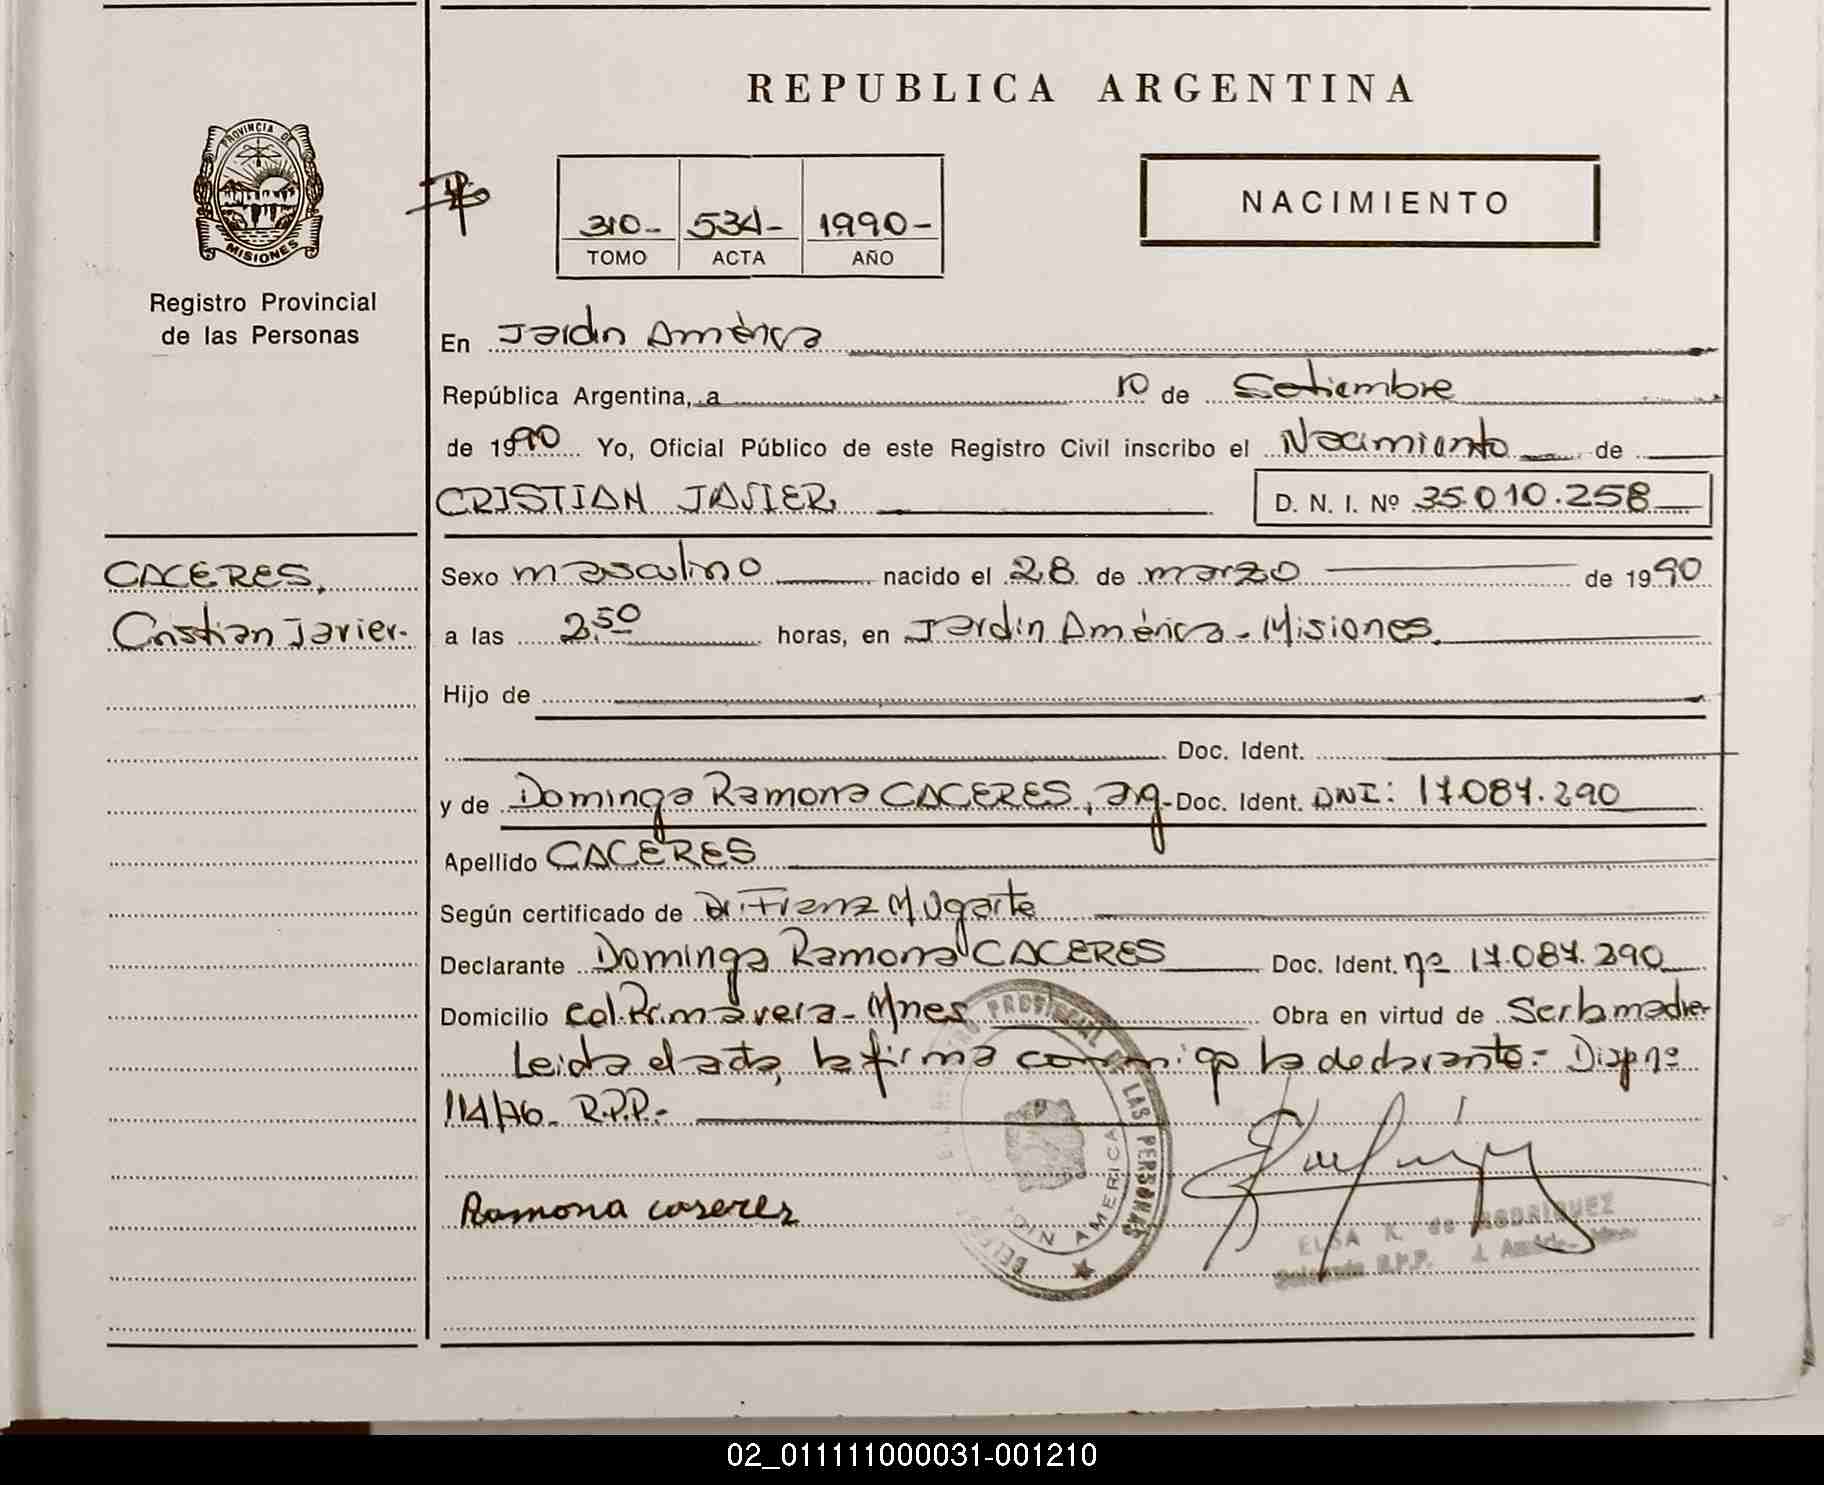 REPUBLICA ARGENTINA
PROVINCIA DE
MISIONES
Registro Provincial
de las Personas
310- 534- 1990-
TOMO ACTA AÑO
NACIMIENTO
En Jardin América
República Argentina, a 10 de Setiembre
de 1990 Yo, Oficial Público de este Registro Civil inscribo el Nacimiento de
CRISTIAN JAVIER D. N. I. Nº 35.010.258
CACERES,
Cristian Javier.-
Sexo masculino nacido el 28 de marzo de 1990
a las 2,50 horas, en Jardin América - Misiones
Hijo de
Doc. Ident.
y de Dominga Ramona CACERES, arg.- Doc. Ident. DNI: 17.087.290
Apellido CACERES
Según certificado de Dr. Franz M Ugarte
Declarante Dominga Ramona CACERES Doc. Ident. nº 17.087.290
Domicilio Col. Primavera - Mnes Obra en virtud de Ser la madre-
Leida el acta, la firma conmigo la declarante.- Disp nº
114/76. R.P.P.-
Ramona caserez
PROVINCIAL DE LAS PERSONAS
AMERICA
ELSA K. de RODRIGUEZ
R.P.P.
02_011111000031-001210